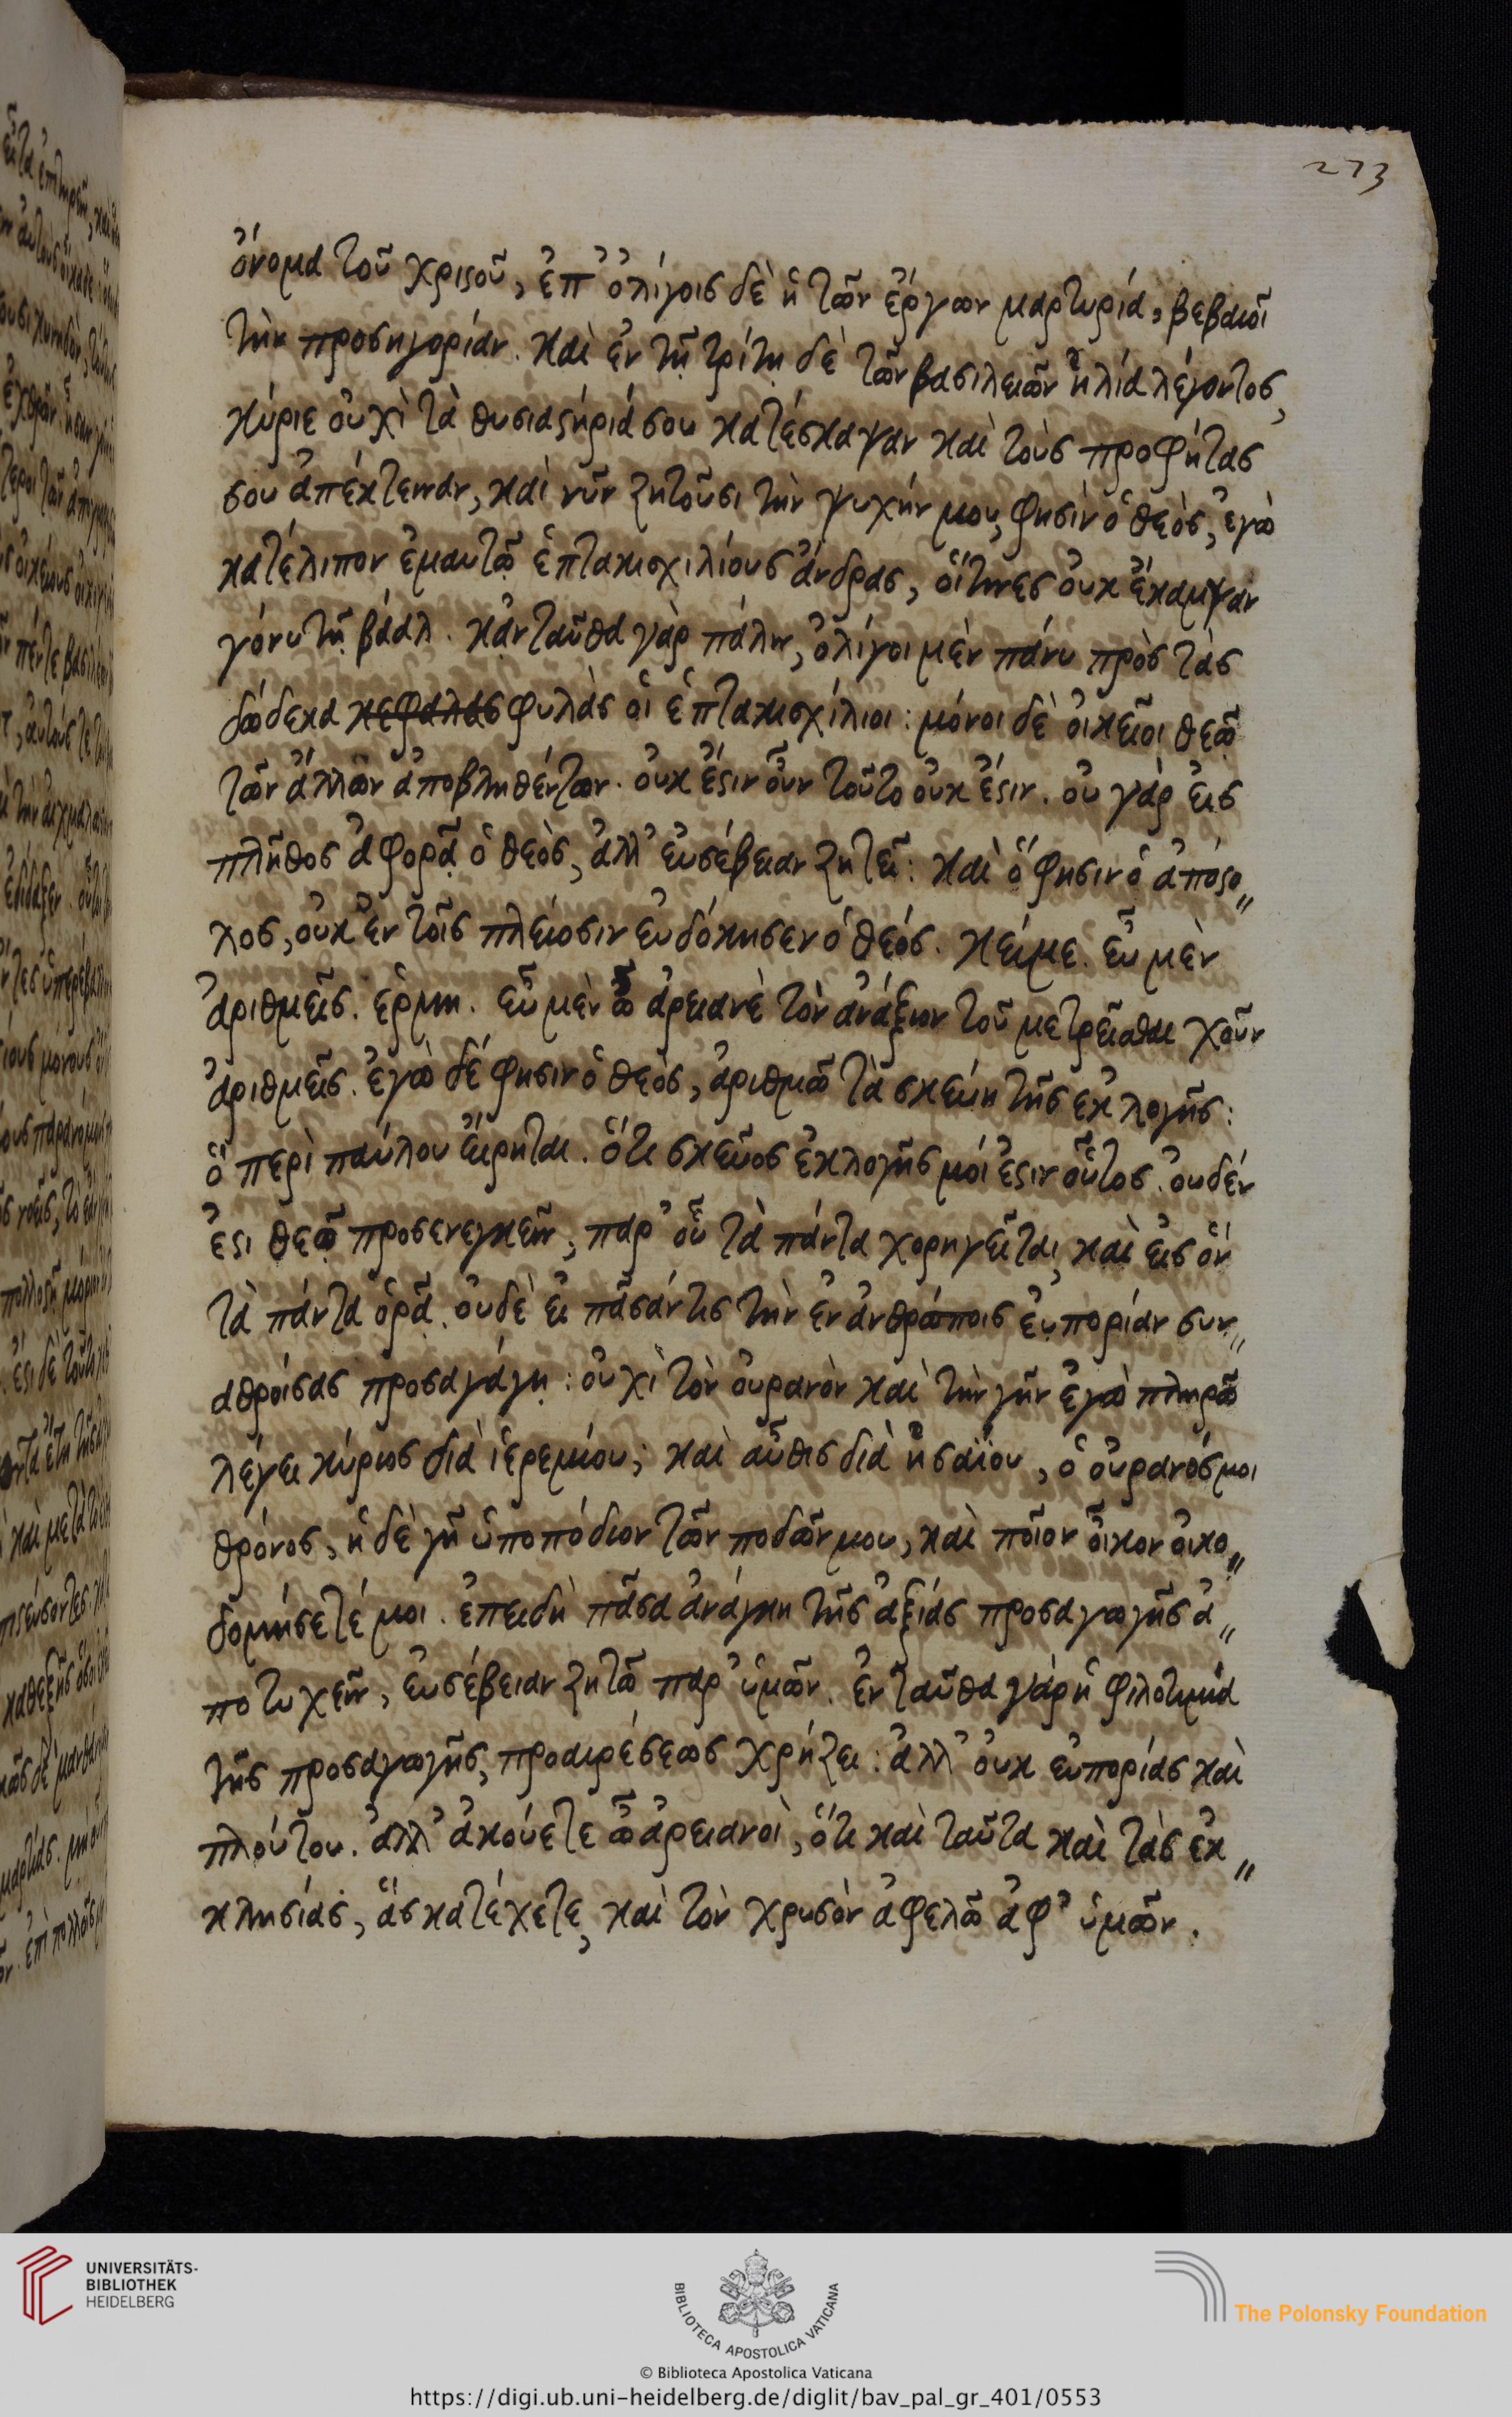 273
ὄνομα τοῦ χριστοῦ, ἐπ' ὀλίγοις δὲ ἡ τῶν ἔργων μαρτυρία, βεβαιοῖ
τὴν προσηγορίαν. καὶ ἐν τῇ τρίτῃ δὲ τῶν βασιλειῶν ἠλία λέγοντος,
κύριε οὐχὶ τὰ θυσιαστήριά σου κατέσκαψαν καὶ τοὺς προφήτας
σου ἀπέκτειναν, καὶ νῦν ζητοῦσι τὴν ψυχήν μου, φησὶν ὁ θεὸς, ἐγὼ
κατέλιπον ἐμαυτῷ ἑπτακισχιλίους ἄνδρας, οἵτινες οὐκ ἔκαμψαν
γόνυ τῇ βάαλ. κἀνταῦθα γὰρ πάλιν, ὀλίγοι μὲν πάνυ πρὸς τὰς
δώδεκα κεφαλὰς φυλὰς οἱ ἑπτακισχίλιοι: μόνοι δὲ οἰκεῖοι θεῷ
τῶν ἄλλων ἀποβληθέντων. οὐκ ἔστιν οὖν τοῦτο οὐκ ἔστιν. οὐ γὰρ εἰς
πλῆθος ἀφορᾷ ὁ θεὸς, ἀλλ' εὐσέβειαν ζητεῖ: καὶ ὅ φησιν ὁ ἀπόστο„
λος, οὐκ ἐν τοῖς πλείοσιν εὐδόκησεν ὁ θεός. κείμε. εὖ μὲν
ἀριθμεῖς. ἑρμη. εὖ μὲν ὦ ἀρειανὲ τὸν ἀνάξιον τοῦ μετρεῖσθαι χοῦν
ἀριθμεῖς. ἐγὼ δέ φησιν ὁ θεὸς, ἀριθμῶ τὰ σκεύη τῆς ἐκλογῆς:
ὃ περὶ παύλου εἴρηται. ὅτι σκεῦος ἐκλογῆς μοί ἐστιν οὗτος. οὐδέν
ἐστι θεῷ προσενεγκεῖν, παρ' οὗ τὰ πάντα χορηγεῖται, καὶ εἰς ὃν
τὰ πάντα ὁρᾷ. οὐδὲ εἰ πᾶσάν τις τὴν ἐν ἀνθρώποις εὐπορίαν συν„
αθροίσας προσαγάγῃ: οὐχὶ τὸν οὐρανὸν καὶ τὴν γῆν ἐγὼ πληρῶ
λέγει κύριος διὰ ἱερεμίου; καὶ αὖθις διὰ ἠσαΐου, ὁ οὐρανός μοι
θρόνος, ἡ δὲ γῆ ὑποπόδιον τῶν ποδῶν μου, καὶ ποῖον οἶκον οἰκο„
δομήσετέ μοι. ἐπειδὴ πᾶσα ἀνάγκη τῆς ἀξίας προσαγωγῆς ἀ„
ποτυχεῖν, εὐσέβειαν ζητῶ παρ' ὑμῶν. ἐνταῦθα γὰρ ἡ φιλοτιμία
τῆς προσαγωγῆς, προαιρέσεως χρήζει: ἀλλ' οὐκ εὐπορίας καὶ
πλούτου. ἀλλ' ἀκούετε ὦ ἀρειανοὶ, ὅτι καὶ ταῦτα καὶ τὰς ἐκ„
κλησίας, ἃς κατέχετε, καὶ τὸν χρυσὸν ἀφελῶ ἀφ' ὑμῶν.
UNIVERSITÄTS-
BIBLIOTHEK
HEIDELBERG
BIBLIOTECA APOSTOLICA VATICANA
The Polonsky Foundation
© Biblioteca Apostolica Vaticana
https://digi.ub.uni-heidelberg.de/diglit/bav_pal_gr_401/0553